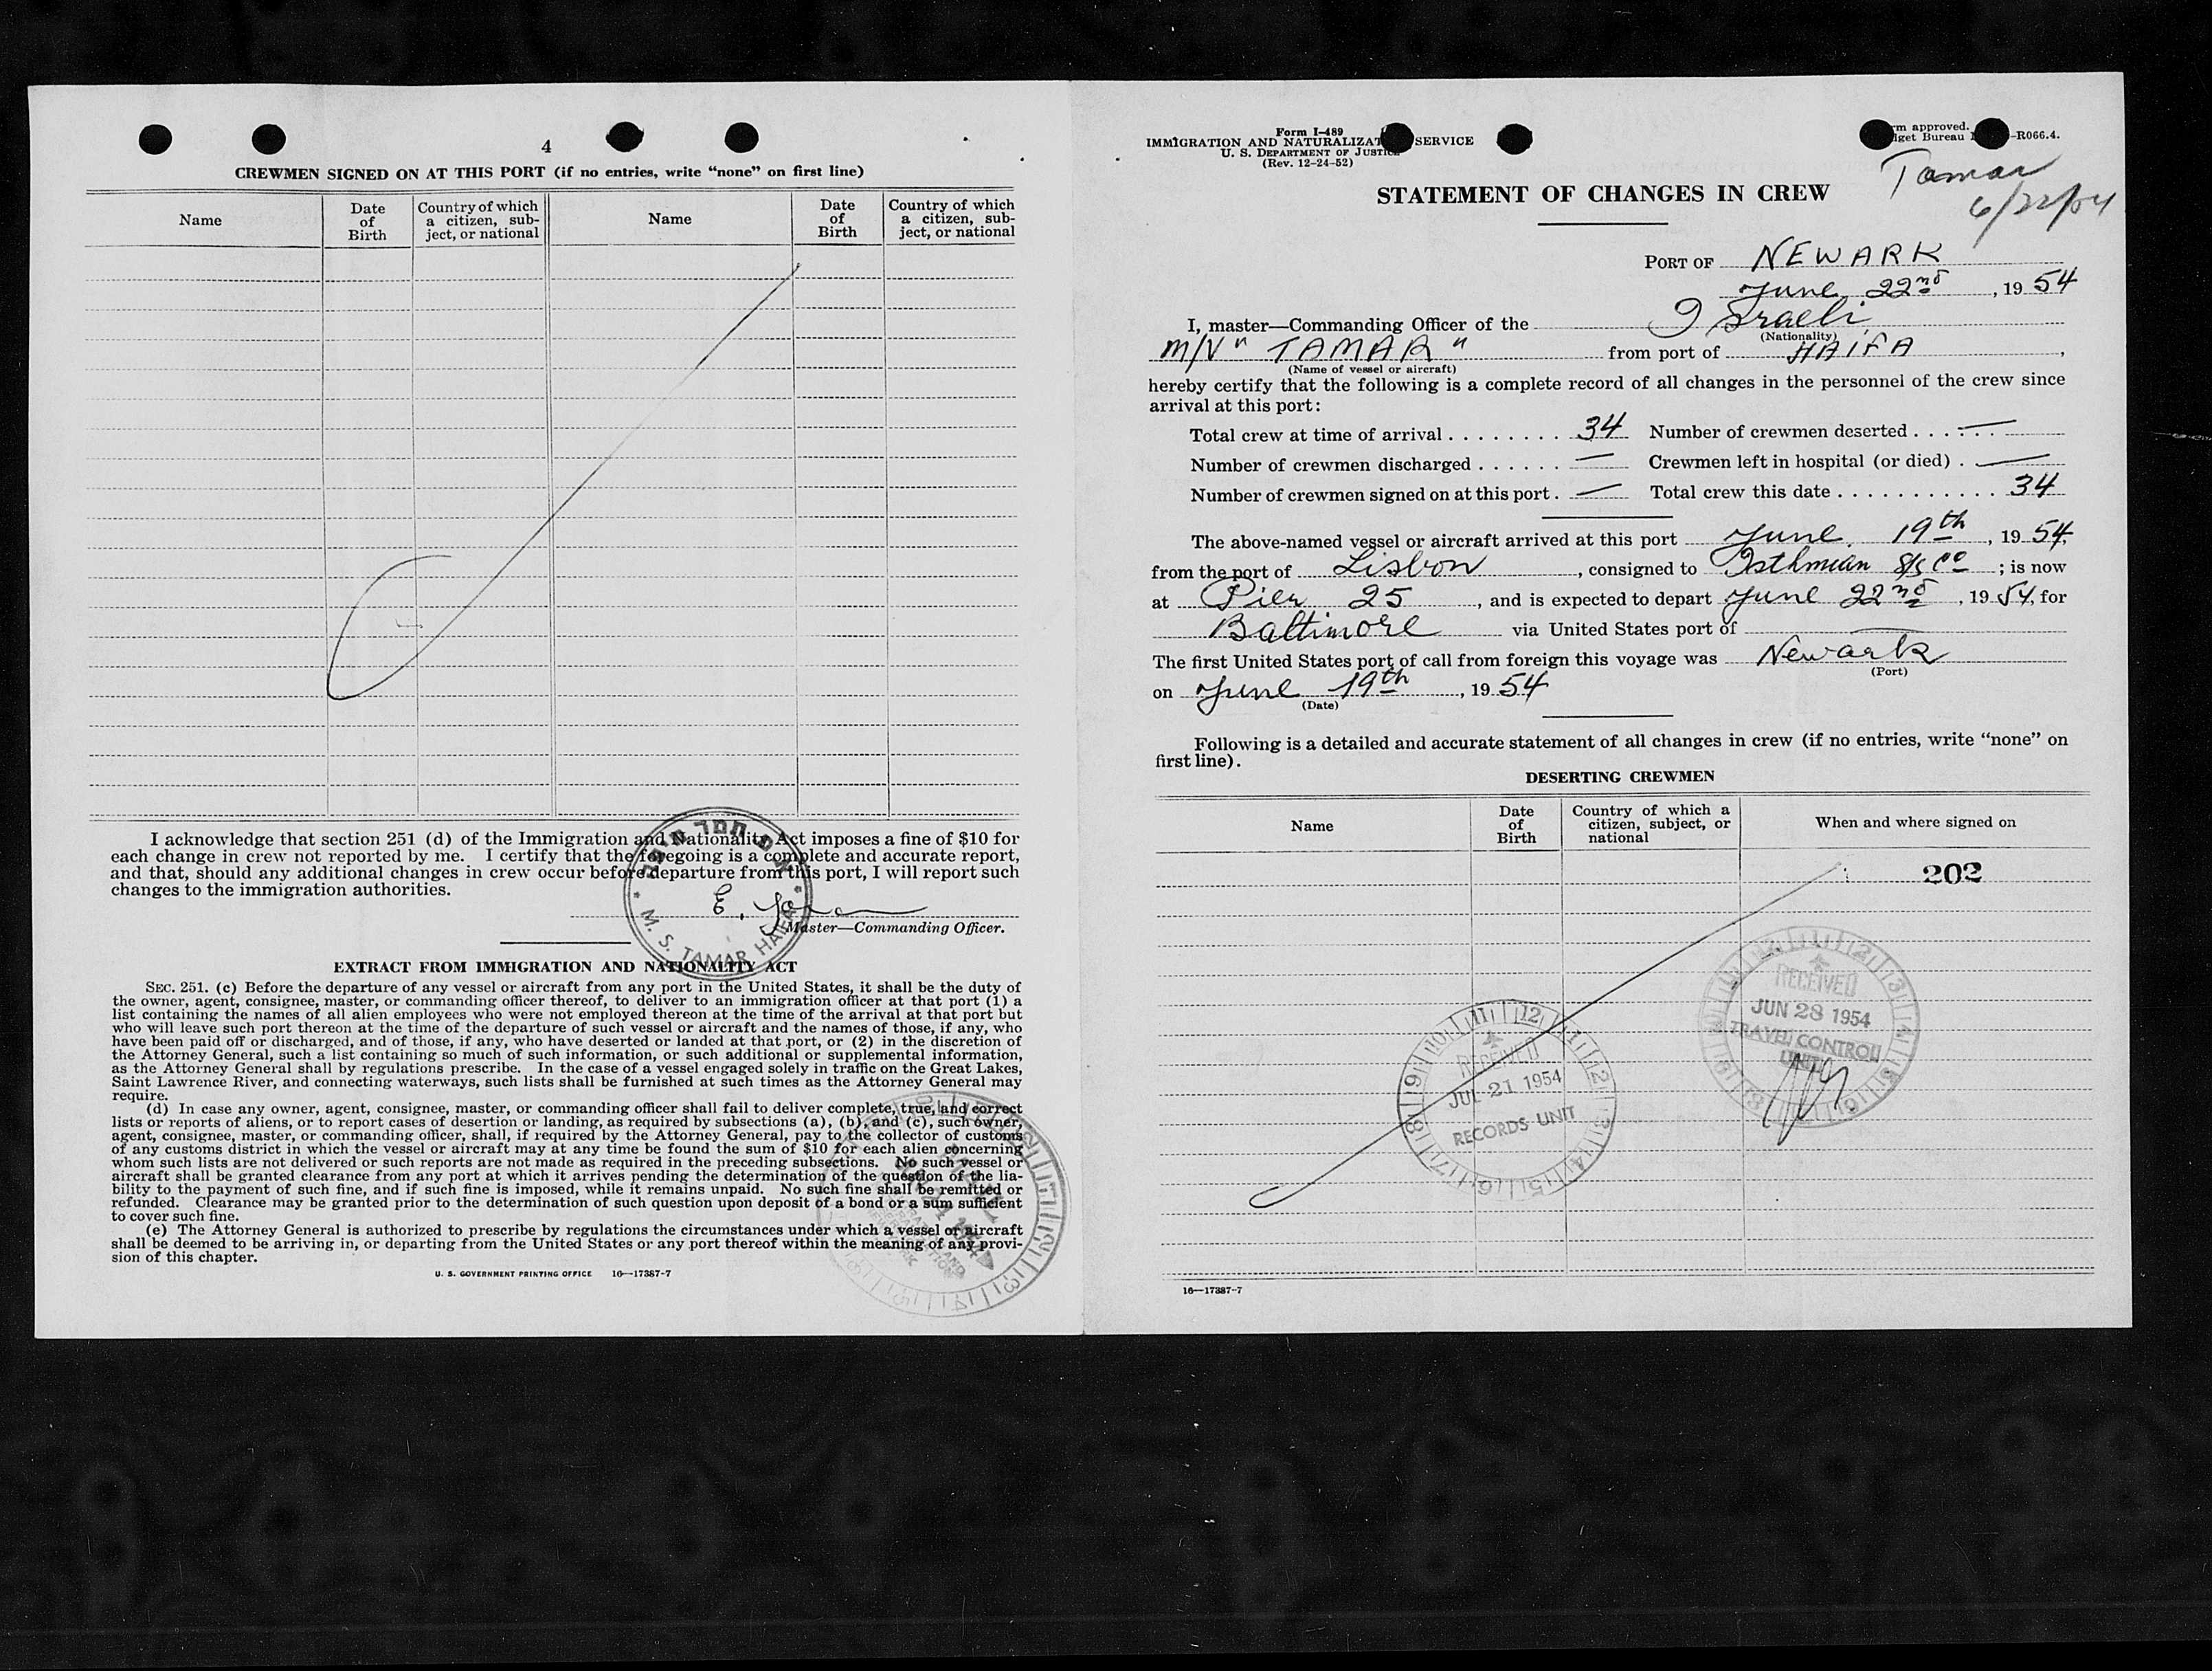 4
CREWMEN SIGNED ON AT THIS PORT (if no entries, write “none” on first line)
Name
Date of Birth
Country of which a citizen, sub-
ject, or national
Name
Date of Birth
Country of which a citizen, sub-
ject, or national
I acknowledge that section 251 (d) of the Immigration and Nationality Act imposes a fine of $10 for
each change in crew not reported by me. I certify that the foregoing is a complete and accurate report,
and that, should any additional changes in crew occur before departure from this port, I will report such
changes to the immigration authorities.
E.
Master—Commanding Officer.
* M. S. TAMAR HAIFA *
EXTRACT FROM IMMIGRATION AND NATIONALITY ACT
SEC. 251. (c) Before the departure of any vessel or aircraft from any port in the United States, it shall be the duty of
the owner, agent, consignee, master, or commanding officer thereof, to deliver to an immigration officer at that port (1) a
list containing the names of all alien employees who were not employed thereon at the time of the arrival at that port but
who will leave such port thereon at the time of the departure of such vessel or aircraft and the names of those, if any, who
have been paid off or discharged, and of those, if any, who have deserted or landed at that port, or (2) in the discretion of
the Attorney General, such a list containing so much of such information, or such additional or supplemental information,
as the Attorney General shall by regulations prescribe. In the case of a vessel engaged solely in traffic on the Great Lakes,
Saint Lawrence River, and connecting waterways, such lists shall be furnished at such times as the Attorney General may
require.
(d) In case any owner, agent, consignee, master, or commanding officer shall fail to deliver complete, true, and correct
lists or reports of aliens, or to report cases of desertion or landing, as required by subsections (a), (b), and (c), such owner,
agent, consignee, master, or commanding officer, shall, if required by the Attorney General, pay to the collector of customs
of any customs district in which the vessel or aircraft may at any time be found the sum of $10 for each alien concerning
whom such lists are not delivered or such reports are not made as required in the preceding subsections. No such vessel or
aircraft shall be granted clearance from any port at which it arrives pending the determination of the question of the lia-
bility to the payment of such fine, and if such fine is imposed, while it remains unpaid. No such fine shall be remitted or
refunded. Clearance may be granted prior to the determination of such question upon deposit of a bond or a sum sufficient
to cover such fine.
(e) The Attorney General is authorized to prescribe by regulations the circumstances under which a vessel or aircraft
shall be deemed to be arriving in, or departing from the United States or any port thereof within the meaning of any provi-
sion of this chapter.
U. S. GOVERNMENT PRINTING OFFICE 16—17387-7
Form I-489
IMMIGRATION AND NATURALIZAT SERVICE
U. S. DEPARTMENT OF JUSTICE
(Rev. 12-24-52)
m approved.
get Bureau -R066.4.
Tamar
6/22/54
STATEMENT OF CHANGES IN CREW
PORT OF NEWARK
June 22nd, 1954
I, master—Commanding Officer of the Israeli
(Nationality)
M/V "TAMAR" from port of HAIFA,
(Name of vessel or aircraft)
hereby certify that the following is a complete record of all changes in the personnel of the crew since
arrival at this port:
Total crew at time of arrival . . . . . . . . 34 Number of crewmen deserted . . . . . . —
Number of crewmen discharged . . . . . . — Crewmen left in hospital (or died) . —
Number of crewmen signed on at this port . — Total crew this date . . . . . . . . . . . . 34
The above-named vessel or aircraft arrived at this port June 19th, 1954,
from the port of Lisbon, consigned to Isthmian S/S Co; is now
at Pier 25, and is expected to depart June 22nd, 1954, for
Baltimore via United States port of —
The first United States port of call from foreign this voyage was Newark
(Port)
on June 19th, 1954
(Date)
Following is a detailed and accurate statement of all changes in crew (if no entries, write “none” on
first line).
DESERTING CREWMEN
Name
Date of Birth
Country of which a citizen, subject, or national
When and where signed on
202
RECEIVED
JUN 28 1954
TRAVEL CONTROL
UNIT
RECEIVED
JUL 21 1954
RECORDS UNIT
16—17387-7